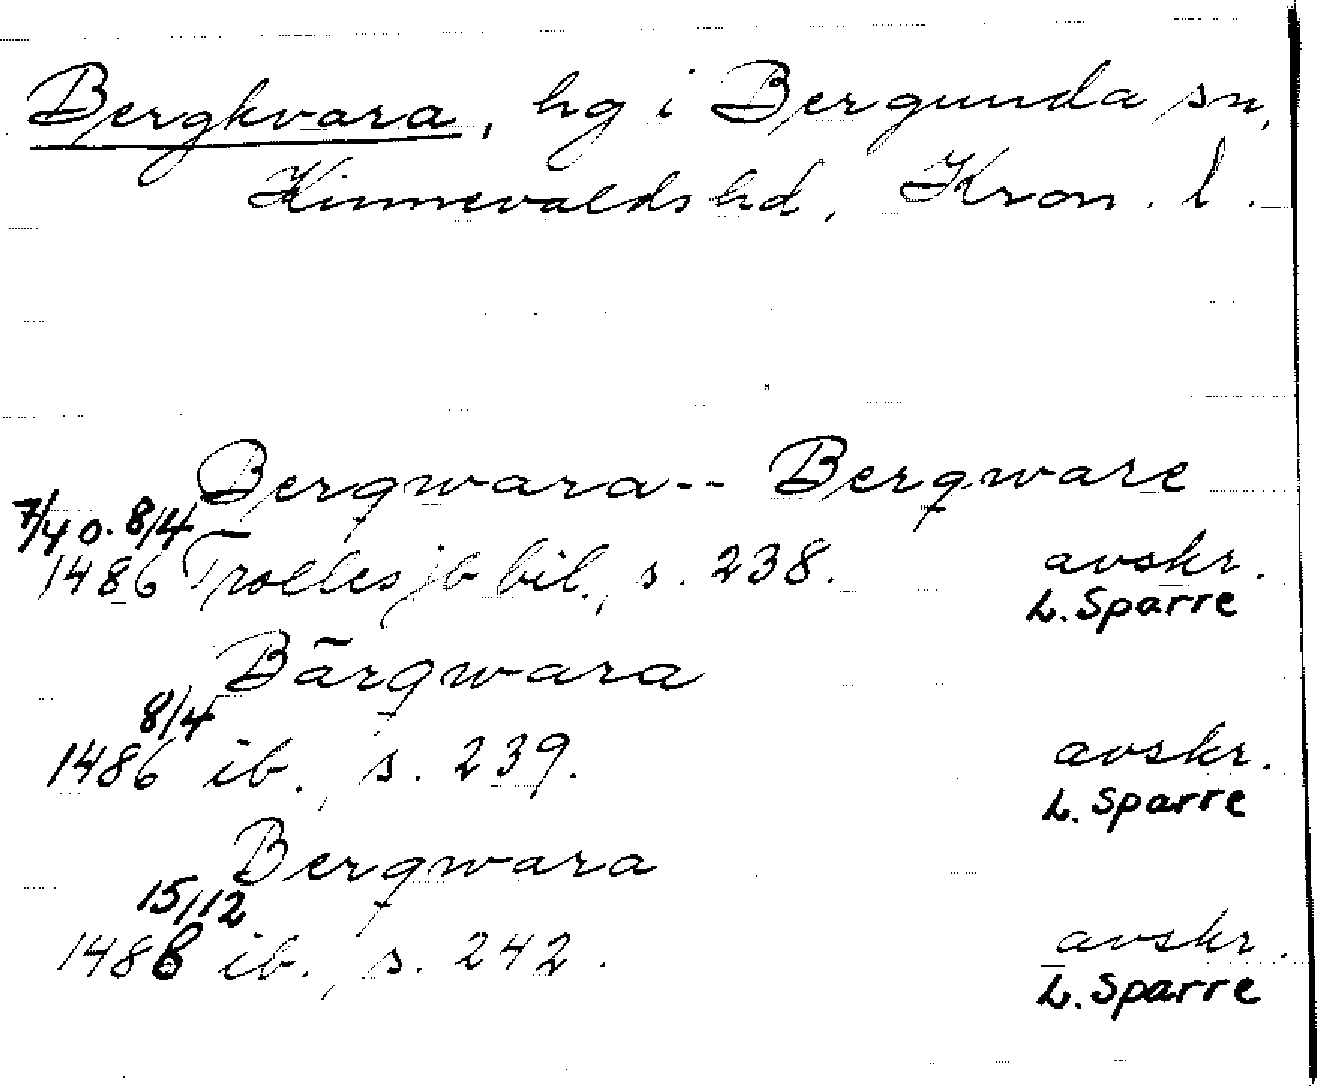 Bergkvara, hg i Bergunda sn,
Kinnevalds hd, Kron. l.
Bergqwara -- Bergqware
7/40. 8/4
1486 Trolles jb bil., s. 238. avskr.
L. Sparre
Bärgqwara
8/4
1486 ib., s. 239. avskr.
L. Sparre
Bergqwara
15/12
1488 ib., s. 242. avskr.
L. Sparre